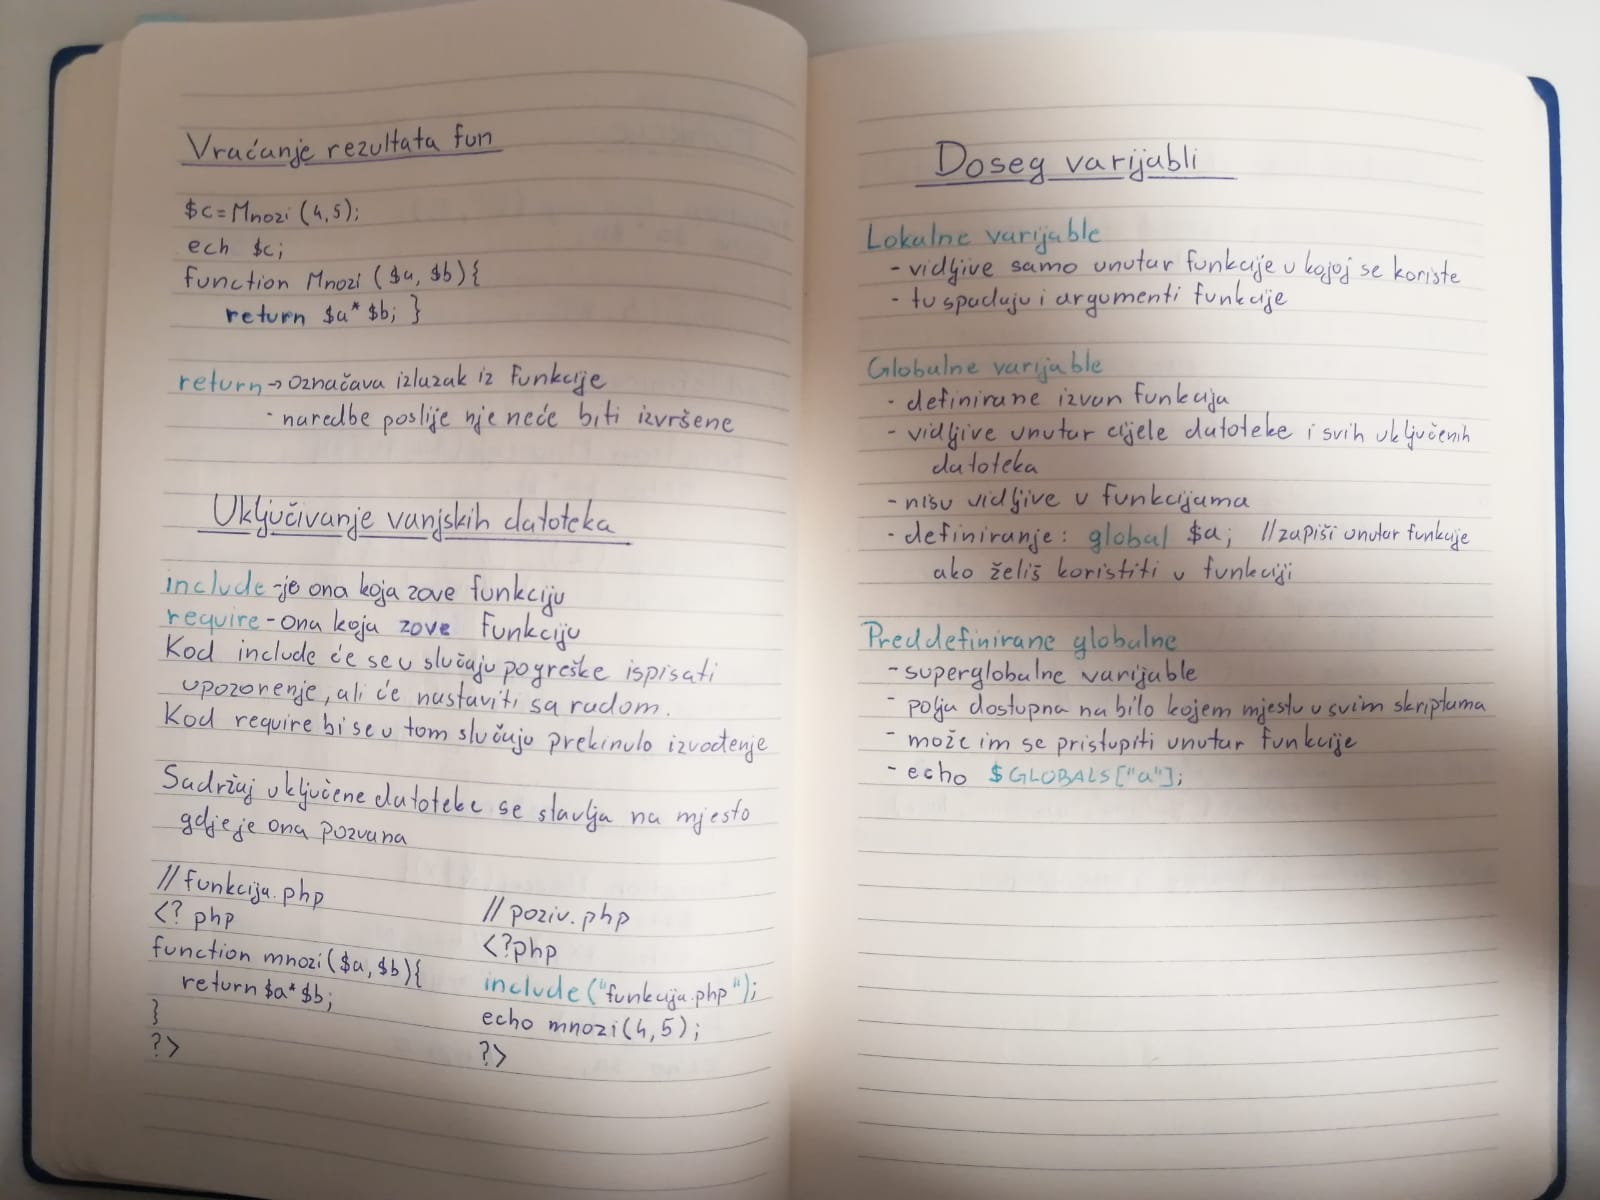 Vraćanje rezultata fun
$c=Mnozi(4,5);
ech $c;
function Mnozi($a, $b){
return $a*$b; }
return→označava izlazak iz funkcije
- naredbe poslije nje neće biti izvršene
Uključivanje vanjskih datoteka
include-je ona koja zove funkciju
require-ona koja zove funkciju
Kod include će se u slučaju pogreške ispisati
upozorenje, ali će nastaviti sa radom.
Kod require bi se u tom slučaju prekinulo izvođenje
Sadržaj uključene datoteke se stavlja na mjesto
gdje je ona pozvana
//funkcija.php
<? php
function mnozi($a,$b){
return $a*$b;
}
?>
//poziv.php
<?php
include("funkcija.php");
echo mnozi(4,5);
?>
Doseg varijabli
Lokalne varijable
- vidljive samo unutar funkcije u kojoj se koriste
- tu spadaju i argumenti funkcije
Globalne varijable
- definirane izvan funkcija
- vidljive unutar cijele datoteke i svih uključenih
datoteka
- nisu vidljive u funkcijama
- definiranje: global $a; //zapiši unutar funkcije
ako želiš koristiti u funkciji
Preddefinirane globalne
- superglobalne varijable
- polja dostupna na bilo kojem mjestu u svim skriptama
- može im se pristupiti unutar funkcije
- echo $GLOBALS["a"];